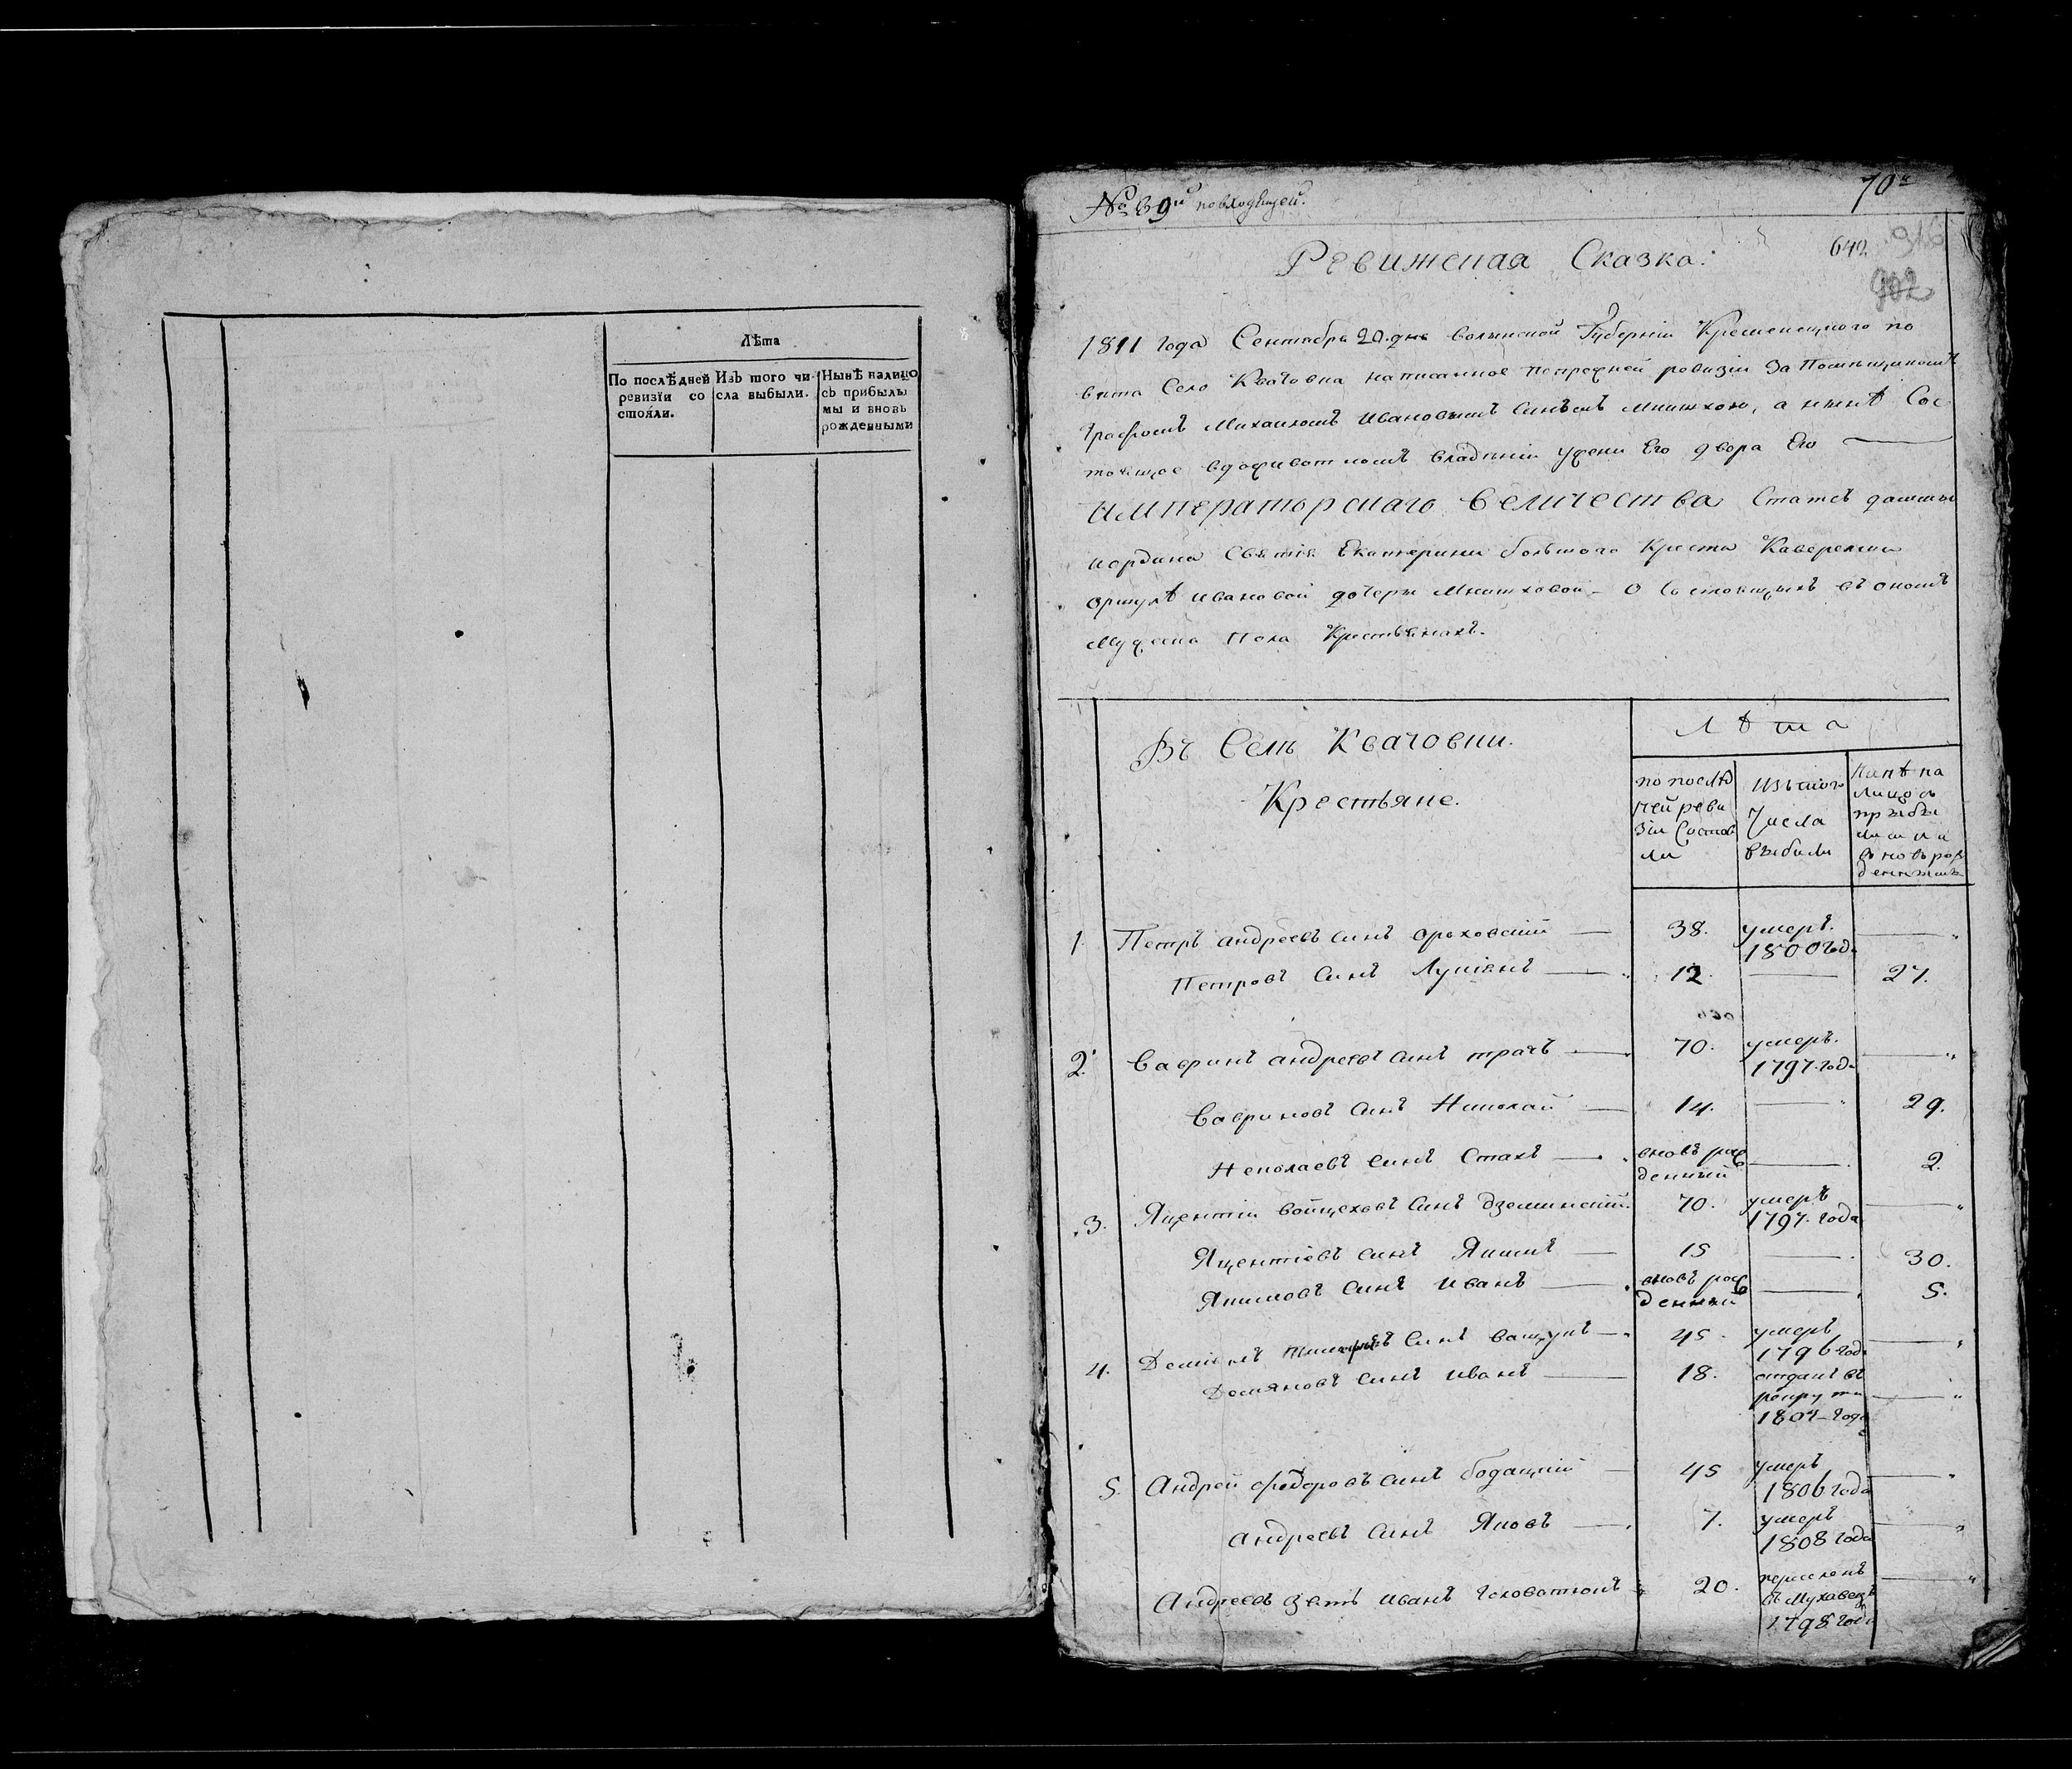 Лѣта
По послѣдней ревизїи состояли.
Изъ того числа выбыли.
Нынѣ налицо съ прибылыми и вновь рожденными
№ 39й повходящей.
70й
642
916
902
Ревижская Сказка:
1811 года Сентября 20. дня волынской Губерніи Кременецкого по
вѣта Село Квачовка написанное попрежней ревизіи За Помѣщикомъ
Графомъ Михаиломъ Ивановымъ Синомъ Мнишкомъ, а нынѣ Сос
тоящое владѣніи Его двора Его
Императорского Величества Статсъ дамы
ордина Святія Екатерини большого Креста Кавереліи
Урсулѣ ивановой дочери Мнишховой - О Состоящихъ въ ономъ
Мужска Пола Крестьянахъ.
Въ Селѣ Квачовки.
Крестьяне.
Лѣта
по послѣд
ней реви
зіи Состоя
ли
Изътого
Числа
выбыли
Нинѣ на
лицо съ
прыбы
лыми и
вновь рож
денными
1. Петръ андреевъ синъ ореховскій — 38. умеръ. 1800 года — "
Петровъ Синъ Лукіянъ — 12. — 27.
2. Вавринъ андреевъ синъ ткачъ — 70. умеръ. 1797. года — "
Вавриновъ Синъ Николай — 14. — 29.
Неколаевъ синъ Стахъ — вновь рожденный — 2.
3. Яцентій войцеховъ Синъ дземинскій. 70. умеръ 1797. года — "
Яцентіевъ синъ Якимъ — 15 — 30.
Якимовъ Синъ иванъ — вновь рожденный — 5.
4. Деміянъ Синъ ващукъ — 45. умеръ 1796 года — "
Демяновъ синъ иванъ — 18. отданъ въ рекруты 1804 года — "
5. Андрей федоровъ синъ бодацкій — 45 умеръ 1806 года — "
андреевъ Синъ Яковъ — 7. умеръ 1808 года — "
Андреевъ зять иванъ головатюкъ — 20. переселенъ въ Мухавец 1798 года — "